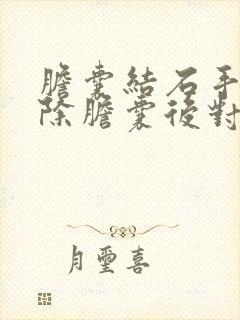 膽囊結石手
除膽囊後對
月璽喜